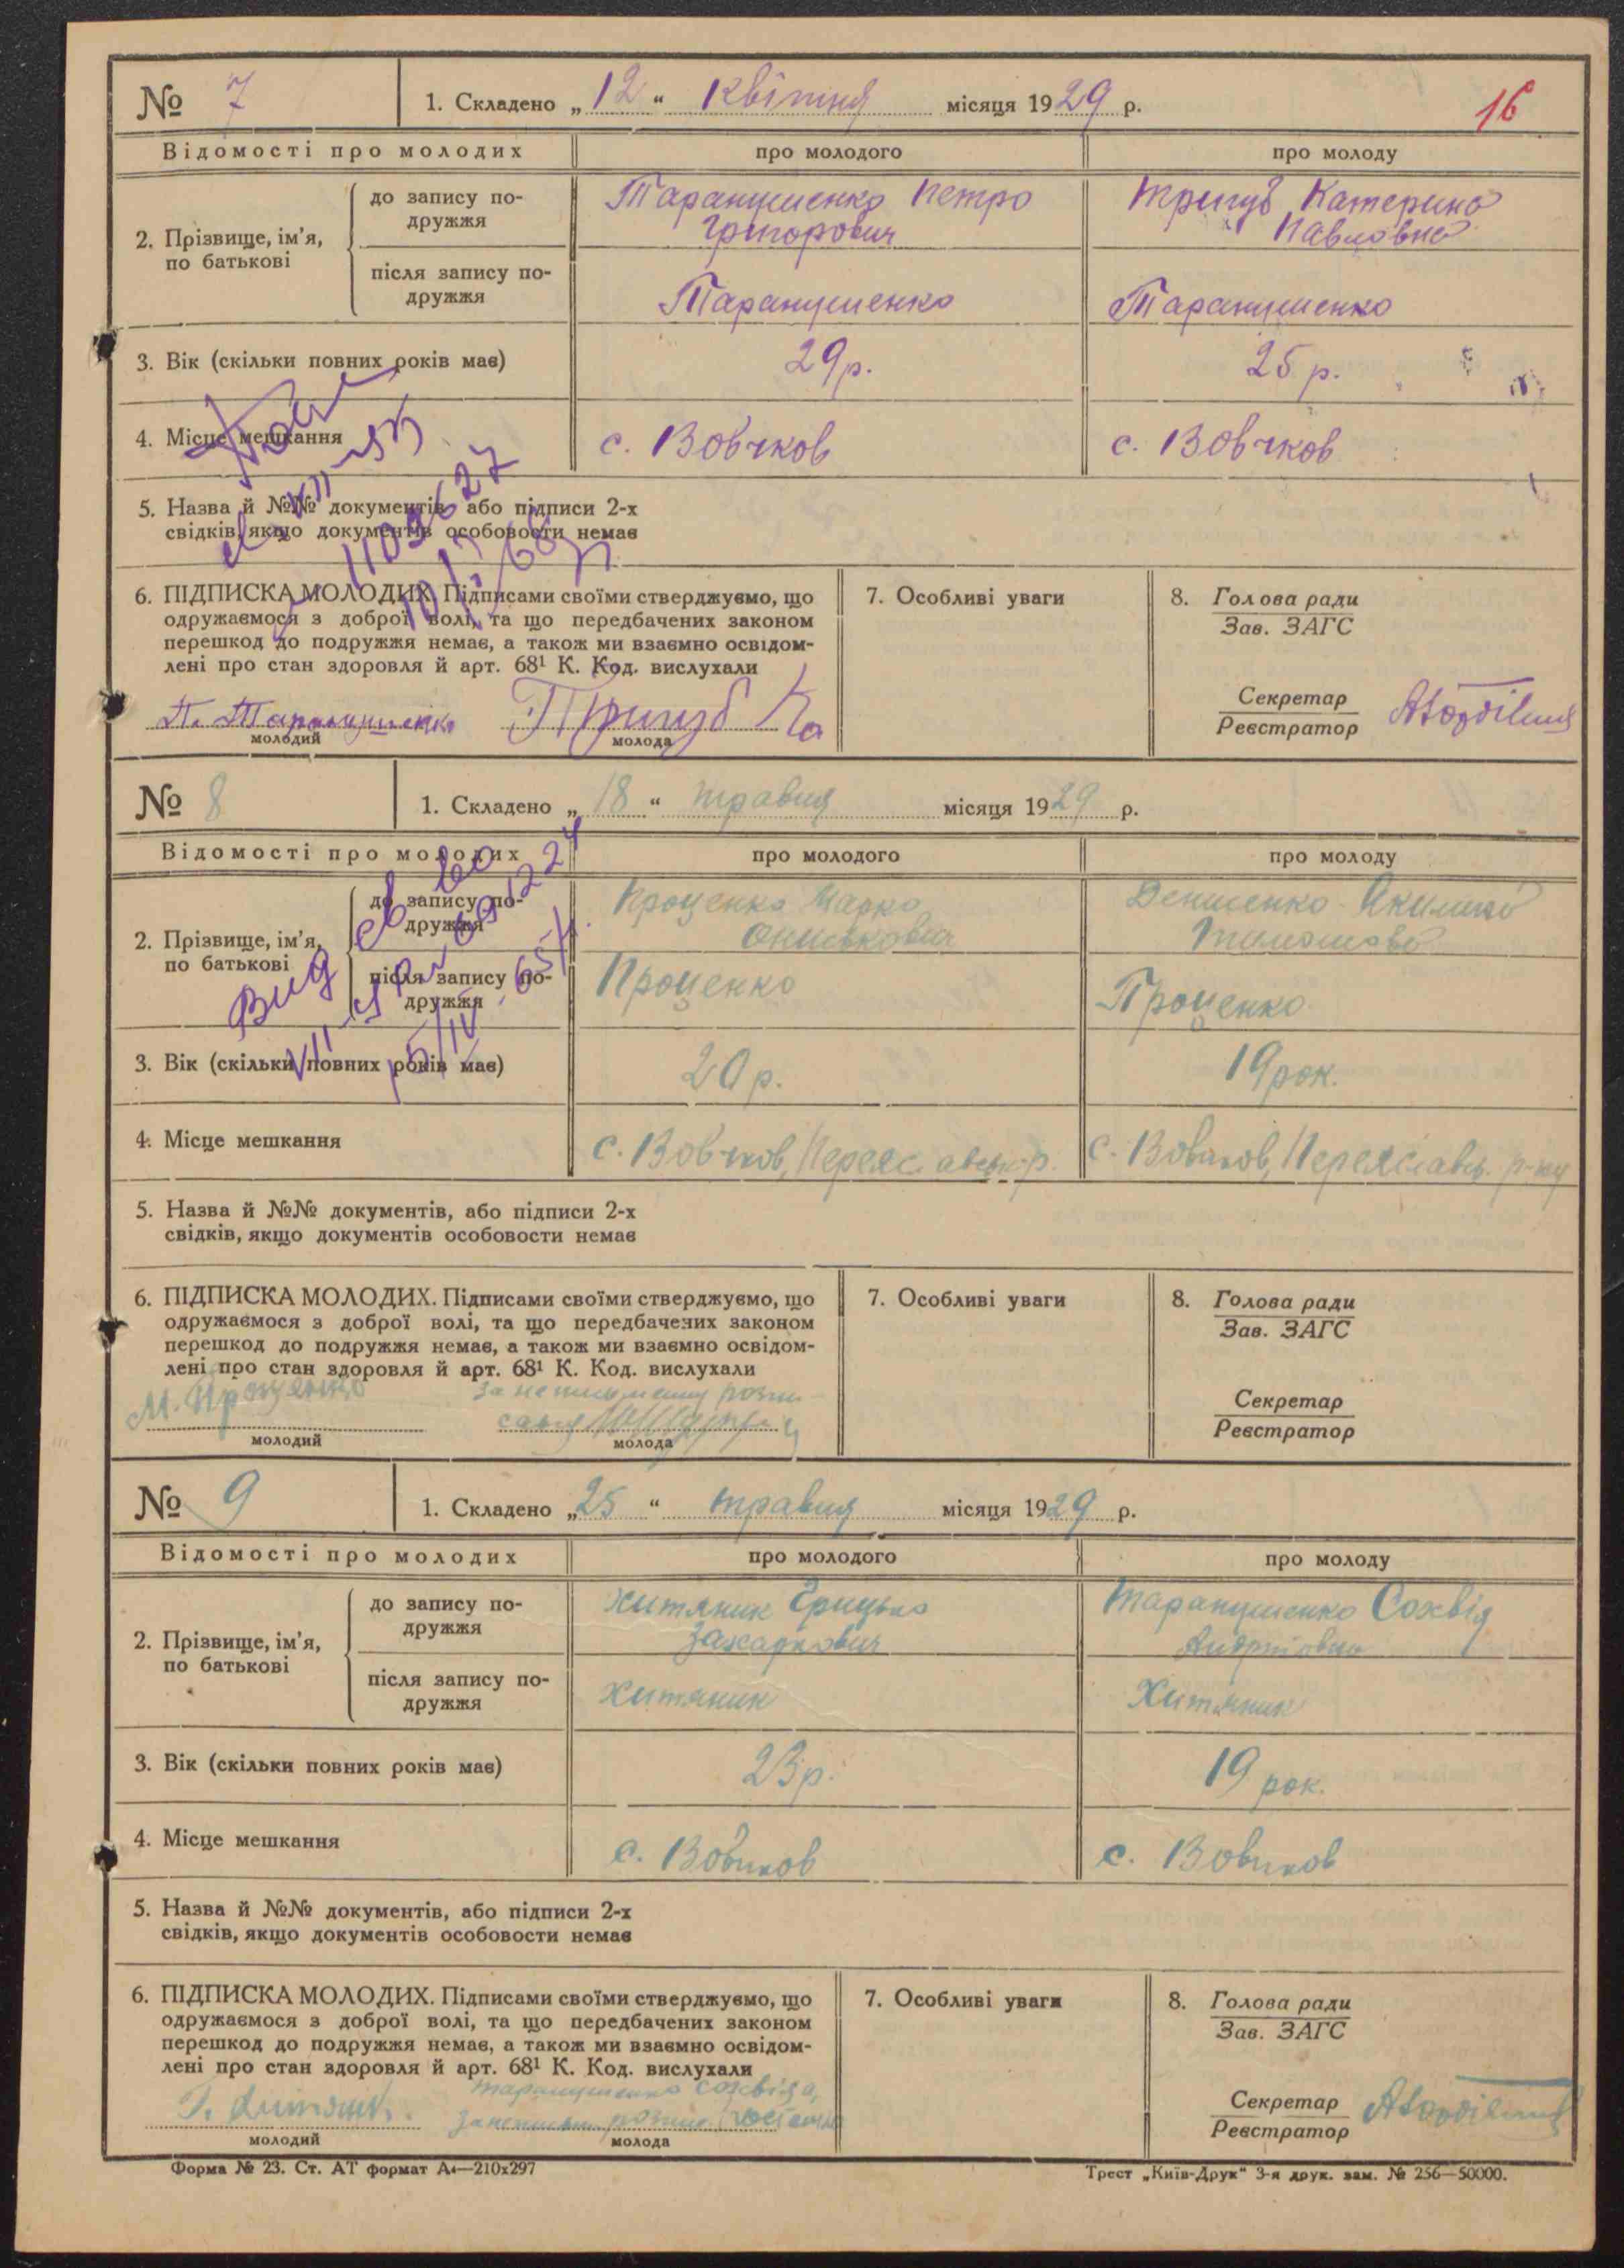 № 7
1. Складено „12“ Квітня місяця 1929 р.
16
Відомості про молодих
про молодого
про молоду
2. Прізвище, ім'я, по батькові
до запису по-
дружжя
Таранушенко Петро
Григорович
Тригуб Катерина
Павловна
після запису по-
дружжя
Таранушенко
Таранушенко
3. Вік (скільки повних років має)
29 р.
25 р.
4. Місце мешкання
с. Вовчков
с. Вовчков
5. Назва й №№ документів, або підписи 2-х
свідків, якщо документів особовости немає
6. ПІДПИСКА МОЛОДИХ. Підписами своїми стверджуємо, що
одружаємося з доброї волі, та що передбачених законом
перешкод до подружжя немає, а також ми взаємно освідом-
лені про стан здоровля й арт. 68¹ К. Код. вислухали
П. Таранушенко
молодий
Тригуб Ка
молода
7. Особливі уваги
8. Голова ради
Зав. ЗАГС
Секретар
Реєстратор
№ 8
1. Складено „18“ травня місяця 1929 р.
Відомості про молодих
про молодого
про молоду
2. Прізвище, ім'я, по батькові
до запису по-
дружжя
Проценко Марко
Ониськович
Денисенко Акилина
Тимошовна
після запису по-
дружжя
Проценко
Проценко
3. Вік (скільки повних років має)
20 р.
19 рок.
4. Місце мешкання
с. Вовчков, Переяславськ. р.
с. Вовчков, Переяславськ. р-ну
5. Назва й №№ документів, або підписи 2-х
свідків, якщо документів особовости немає
6. ПІДПИСКА МОЛОДИХ. Підписами своїми стверджуємо, що
одружаємося з доброї волі, та що передбачених законом
перешкод до подружжя немає, а також ми взаємно освідом-
лені про стан здоровля й арт. 68¹ К. Код. вислухали
М. Проценко
молодий
за неписьменну розпи-
молода
7. Особливі уваги
8. Голова ради
Зав. ЗАГС
Секретар
Реєстратор
№ 9
1. Складено „25“ травня місяця 1929 р.
Відомості про молодих
про молодого
про молоду
2. Прізвище, ім'я, по батькові
до запису по-
дружжя
Хитяник Грицько
Захаркович
Таранушенко Сохвія
Андріївна
після запису по-
дружжя
Хитяник
Хитяник
3. Вік (скільки повних років має)
23 р.
19 рок.
4. Місце мешкання
с. Вовчков
с. Вовчков
5. Назва й №№ документів, або підписи 2-х
свідків, якщо документів особовости немає
6. ПІДПИСКА МОЛОДИХ. Підписами своїми стверджуємо, що
одружаємося з доброї волі, та що передбачених законом
перешкод до подружжя немає, а також ми взаємно освідом-
лені про стан здоровля й арт. 68¹ К. Код. вислухали
Г. Хитяник.
молодий
Таранушенко Сохвія,
молода
7. Особливі уваги
8. Голова ради
Зав. ЗАГС
Секретар
Реєстратор
Форма № 23. Ст. АТ формат А4—210х297
Трест „Київ-Друк“ 3-я друк. зам. № 256—50000.